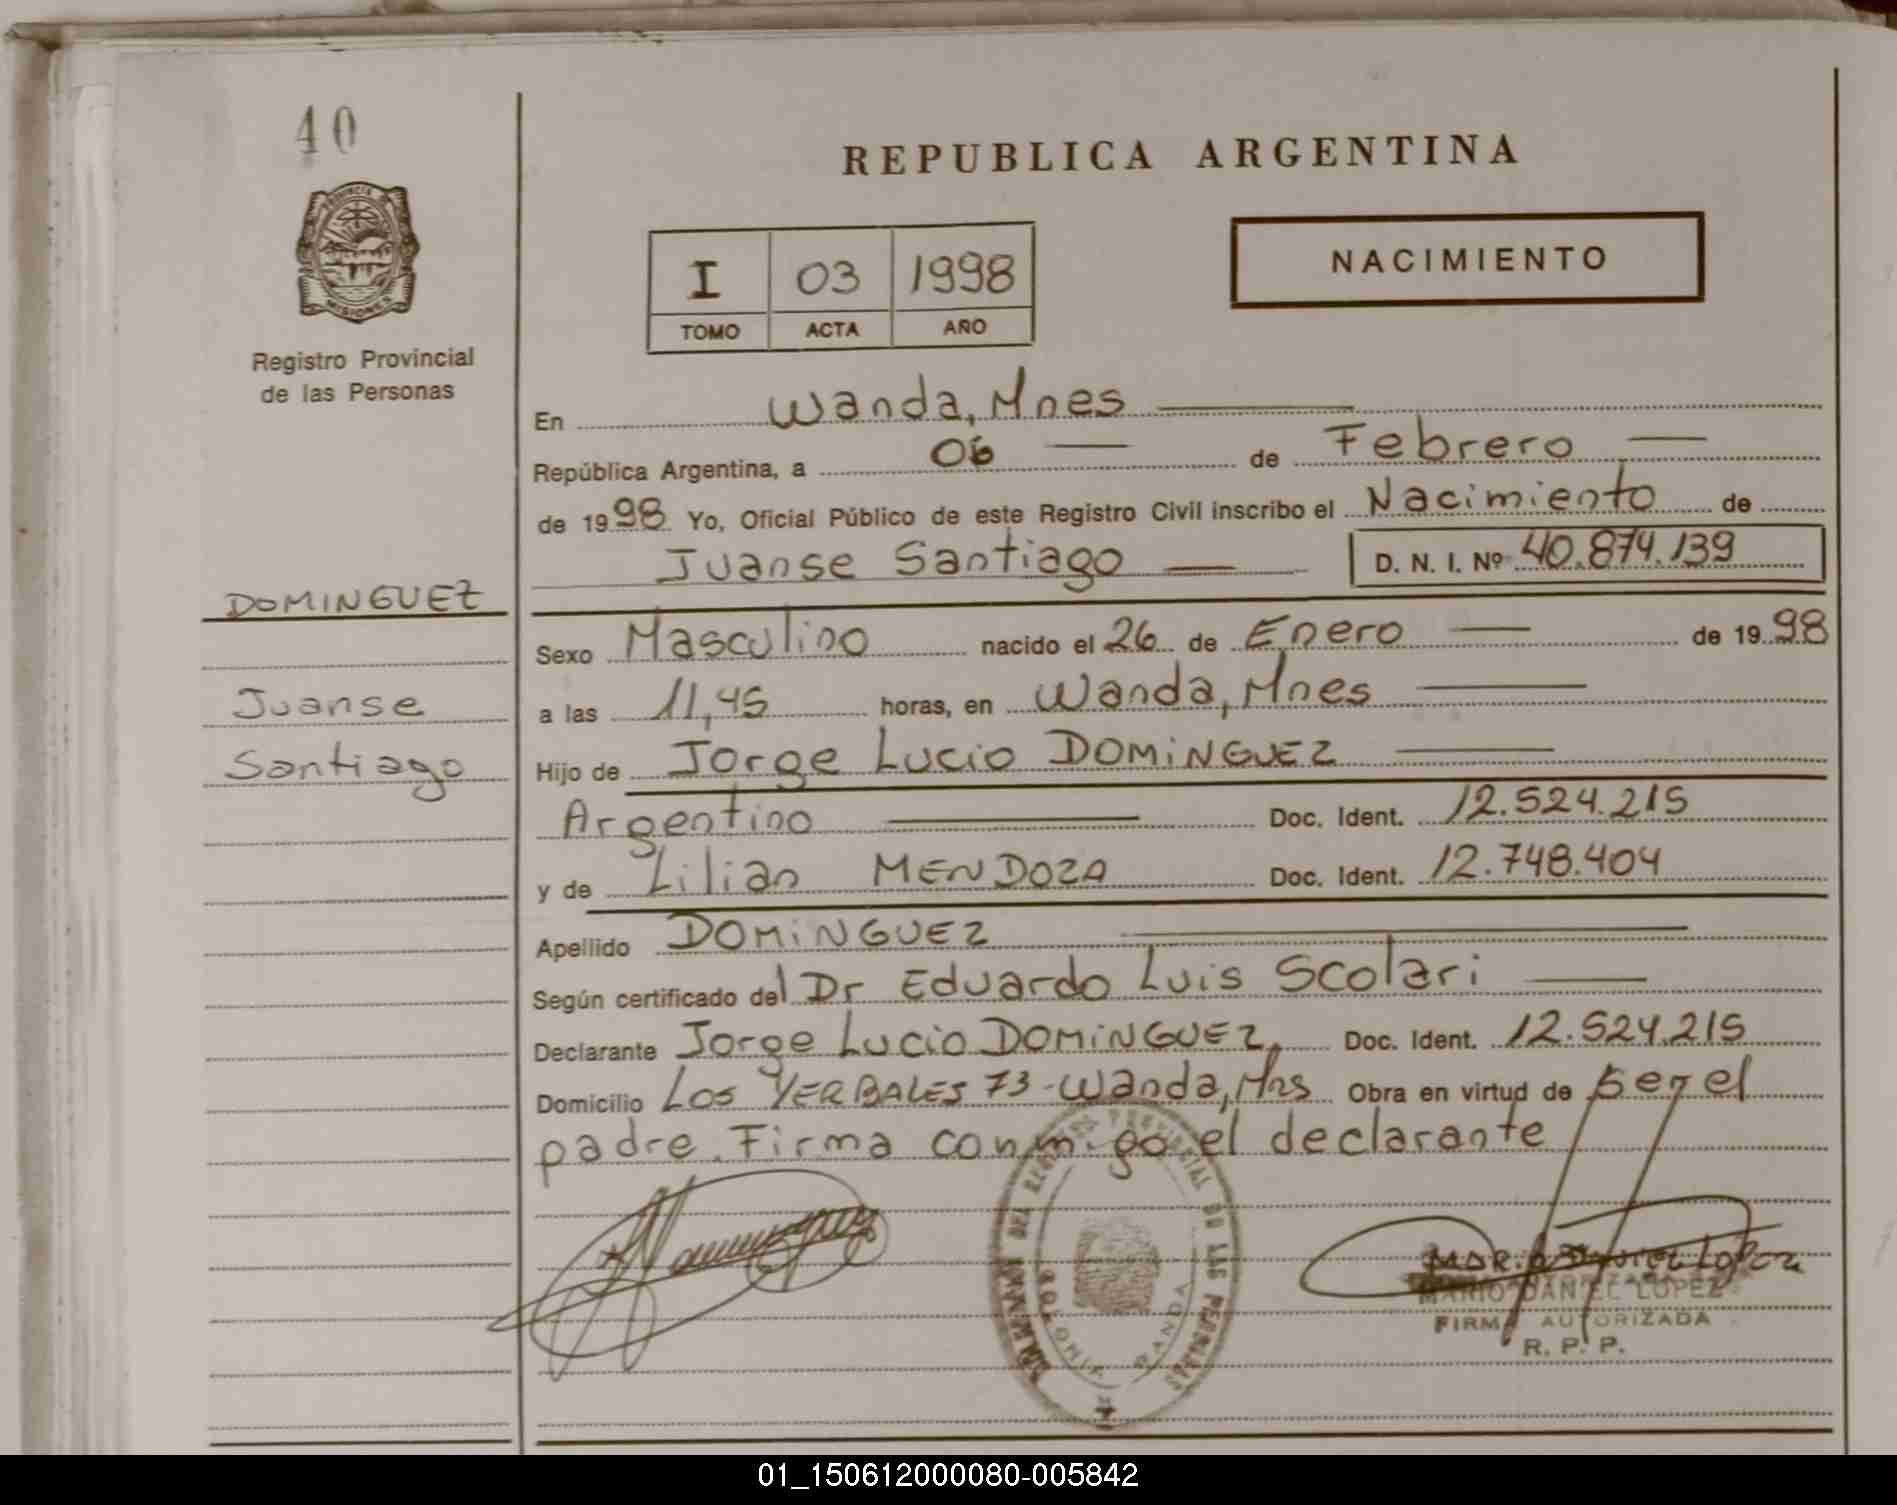 40
PROVINCIA DE
MISIONES
Registro Provincial
de las Personas
DOMINGUEZ
Juanse
Santiago
REPUBLICA ARGENTINA
I 03 1998
TOMO ACTA AÑO
NACIMIENTO
En Wanda, Mnes
República Argentina, a 06 de Febrero
de 1998 Yo, Oficial Público de este Registro Civil inscribo el Nacimiento de
Juanse Santiago D. N. I. Nº 40.874.139
Sexo Masculino nacido el 26 de Enero de 1998
a las 11,45 horas, en Wanda, Mnes
Hijo de Jorge Lucio DOMiNGUEZ
Argentino Doc. Ident. 12.524.215
y de Lilian MENDOZA Doc. Ident. 12.748.404
Apellido DOMiNGUEZ
Según certificado del Dr Eduardo Luis Scolari
Declarante Jorge Lucio DOMiNGUEZ, Doc. Ident. 12.524.215
Domicilio Los YERBALES 73 - Wanda, Mns Obra en virtud de ser el
padre. Firma conmigo el declarante
DEL REGISTRO PROVINCIAL DE LAS PERSONAS
WANDA
MARIO DANIEL LOPEZ
FIRMA AUTORIZADA
R. P. P.
01_150612000080-005842